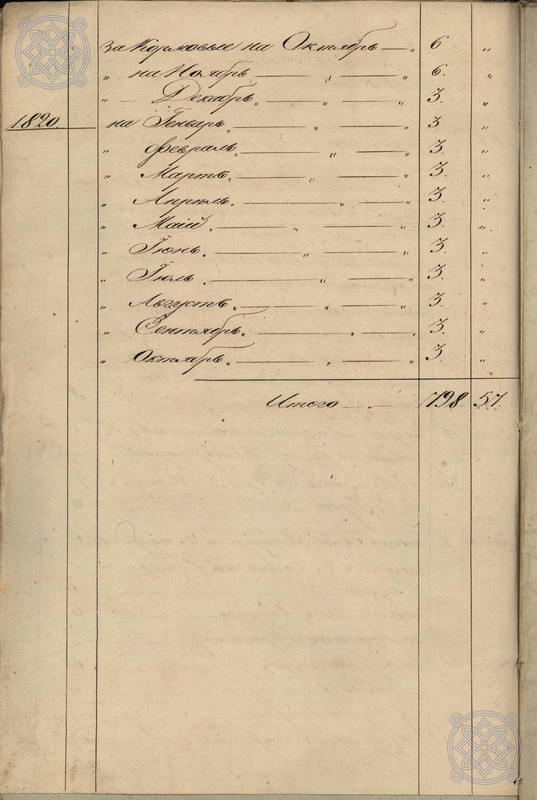 за Кормовые на Октябрь — „ 6 „
„ на Ноябрь — „ — „ 6. „
„ — Декабрь. — „ — „ 3. „
1820. — на Генварь. — „ — „ 3 „
„ Февраль. — „ — „ 3. „
„ Мартъ. — „ — „ 3. „
„ Апрѣль. — „ — „ 3. „
„ Маій. — „ — „ 3. „
„ Іюнь. — „ — „ 3. „
„ Іюль. — „ — „ 3. „
„ Августъ. — „ — „ 3. „
„ Сентябрь. — „ — „ 3. „
„ Октябрь. — „ — „ 3. „
Итого — 798. 57.